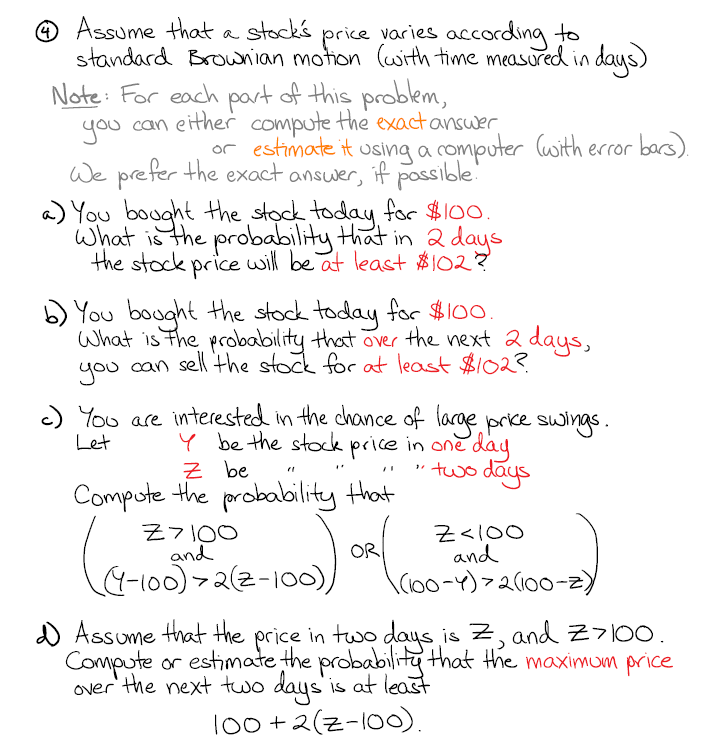 ④ Assume that a stock's price varies according to
standard Brownian motion (with time measured in days)
Note: For each part of this problem,
you can either compute the exact answer
or estimate it using a computer (with error bars).
We prefer the exact answer, if possible.
a) You bought the stock today for $100.
What is the probability that in 2 days
the stock price will be at least $102?
b) You bought the stock today for $100.
What is the probability that over the next 2 days,
you can sell the stock for at least $102?
c) You are interested in the chance of large price swings.
Let Y be the stock price in one day
Z be " " " " two days
Compute the probability that
(Z>100 and (Y-100)>2(Z-100)) OR (Z<100 and (100-Y)>2(100-Z))
d) Assume that the price in two days is Z, and Z>100.
Compute or estimate the probability that the maximum price
over the next two days is at least
100+2(Z-100).